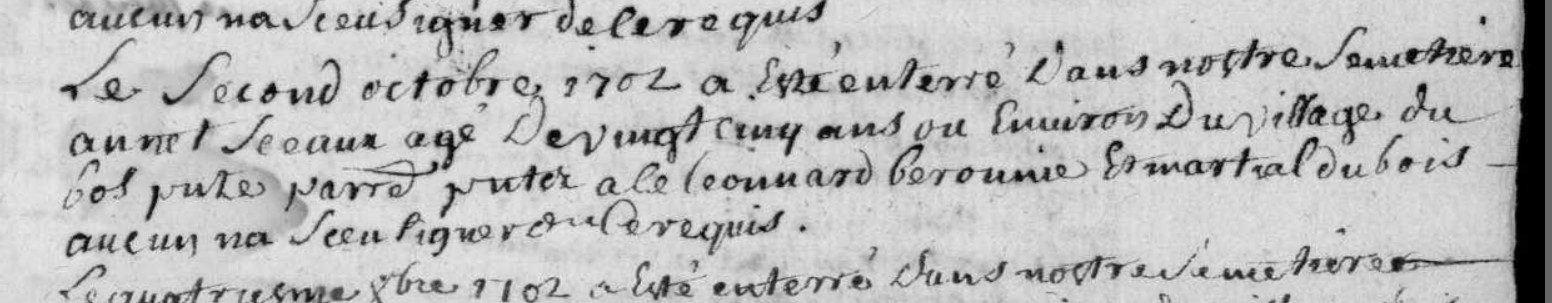 aucun na sceu signer de ce requis
Le second octobre 1702 a esté enterré dans nostre semetiere
annet seeaux agé de vingt cinq ans ou environ du village du
bos pute parre a le leonnard berounie et martial du bois
aucun na sceu signer de ce requis.
Le quatriesme 8bre 1702 a esté enterré dans nostre semetiere